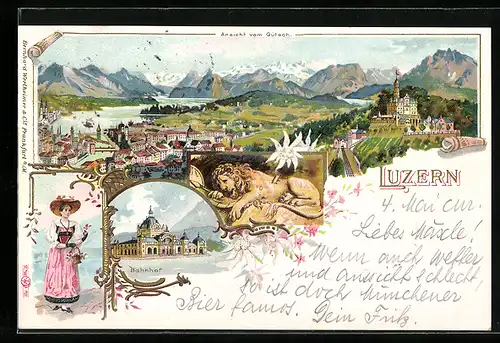 Ansicht vom Gütsch.
Bernhard Wertheimer & Cie Frankfurt a/M.
LUZERN
Bahnhof
4. Mai cur.
Liebes Mäxle!
Wenn auch Wetter
und Aussicht schlecht,
so ist doch Münchener
Bier famos. Dein Fritz.